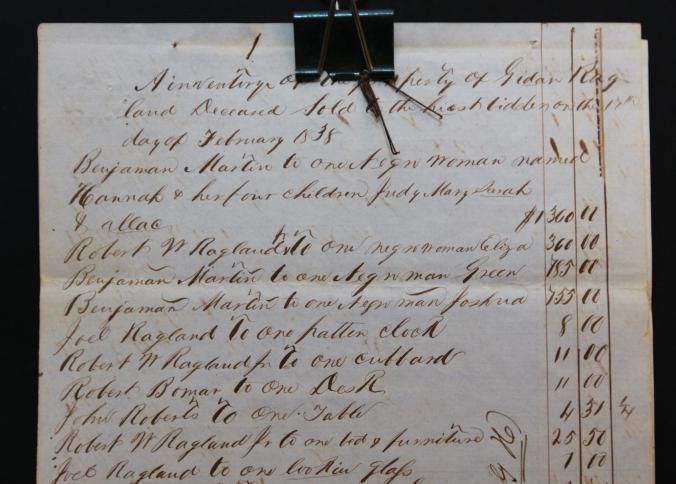 1
A inventory of the property of Gidan Rag-
land Deceased Sold to the hiest bidder on the
day of February 1838
Benjaman Martin to one Negro woman named
Hannah & her four children Judy Mary Sarah
& Mac $1360 00
Robert W Ragland Jr to one negro woman Eliza 360 00
Benjaman Martin to one Negro man Green 785 00
Benjaman Martin to one Negro man Joshua 755 00
Joel Ragland To one patten clock 8 00
Robert W Ragland Jr. to one cubbard 11 00
Robert Bomar to one Desk 11 00
John Roberts To one Table 4 31 1/4
Robert W Ragland Jr to one bed & furniture 25 50
Joel Ragland to one lookin glass 1 00